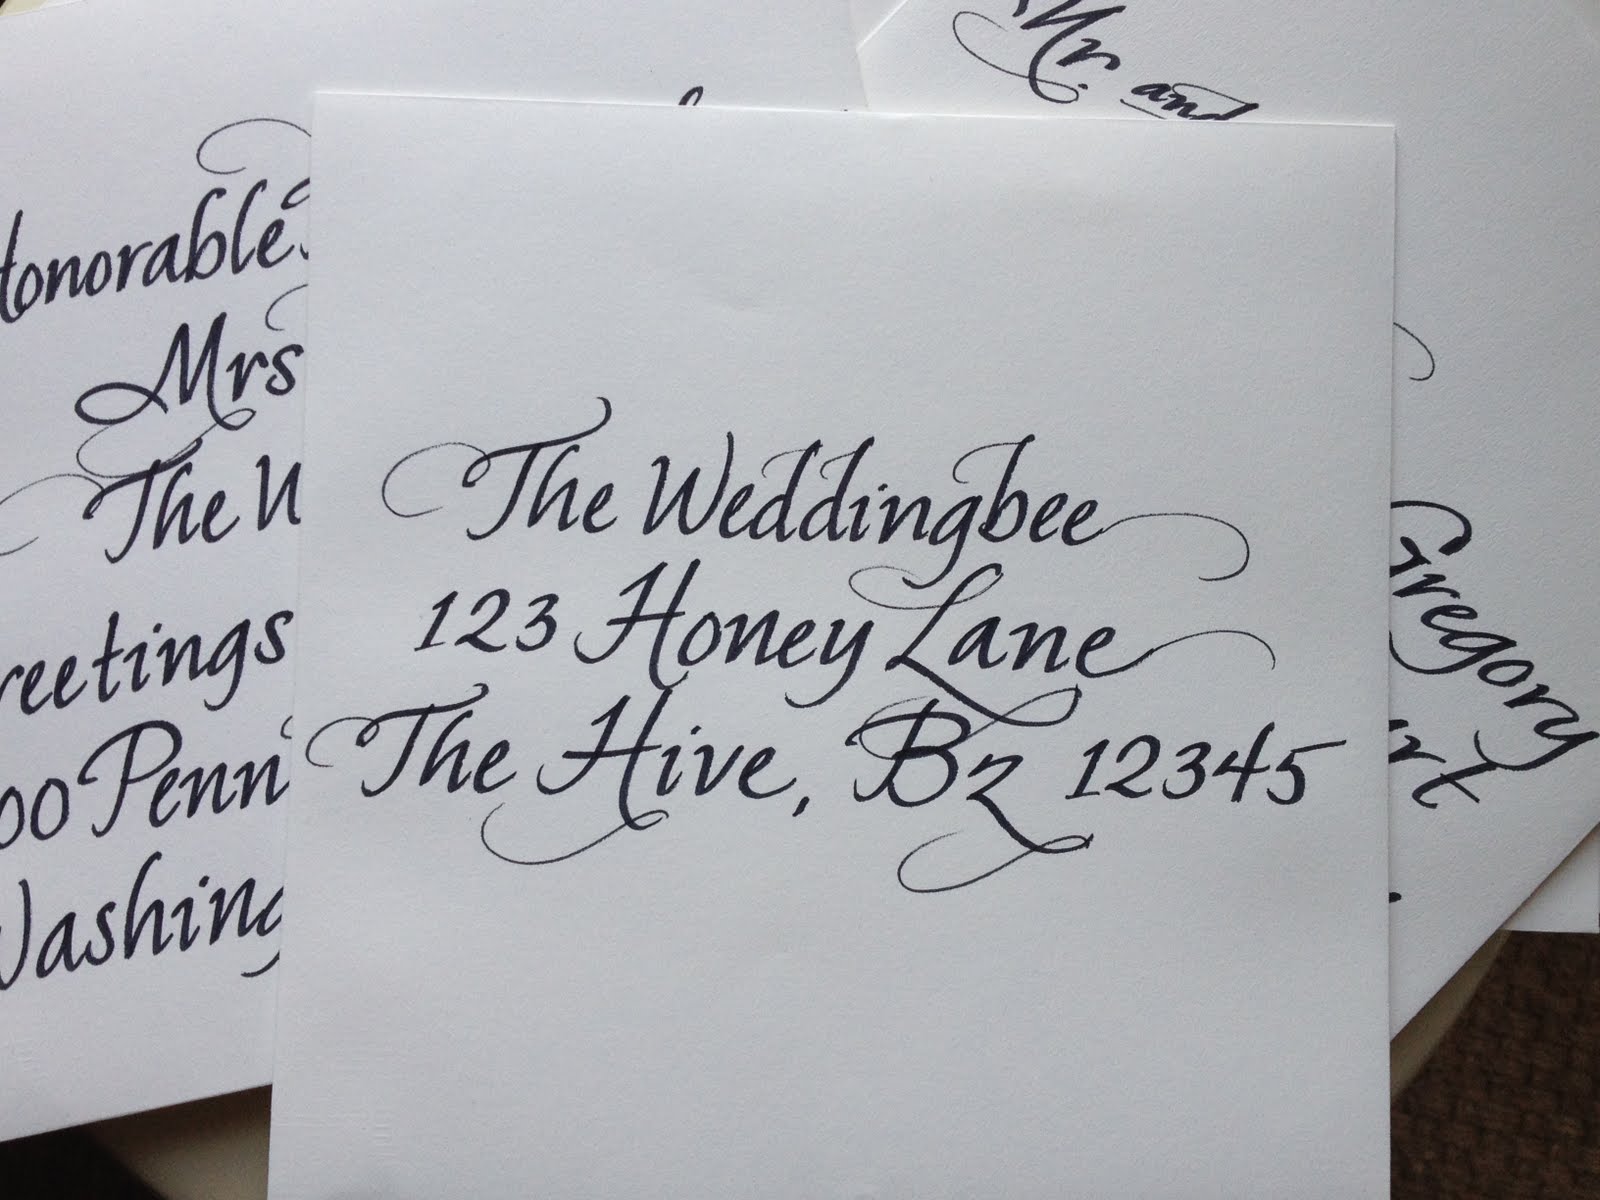 Mr. and
Honorable
Mrs
The
Greetings
Penn
Washing
The Weddingbee
123 Honey Lane
The Hive, Bz 12345
Gregory